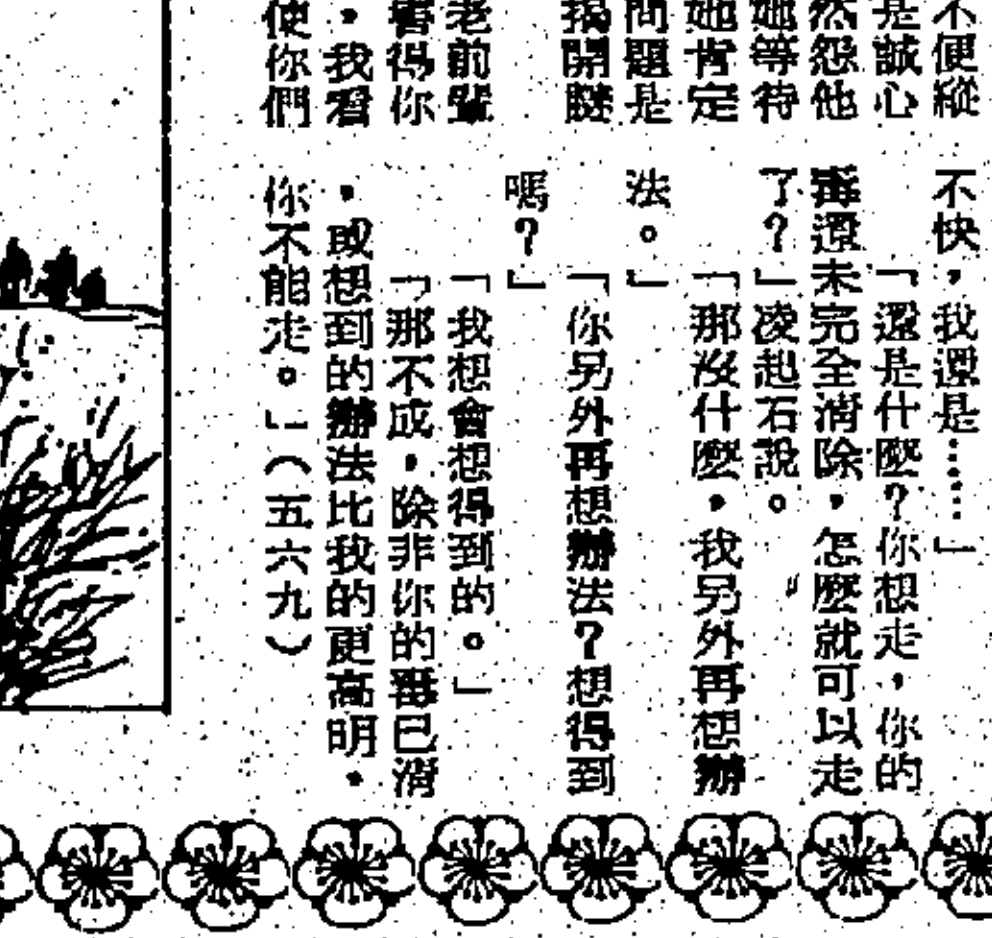 不便縱
是誠心
然怨他
她等待
她肯定
問題是
揭開謎
老前輩
害得你
，我看
使你們
不快，我還是……」
「還是什麼？你想走，你的
毒還未完全消除，怎麼就可以走
了？」凌起石說。
「那沒什麼，我另外再想辦
法。」
「你另外再想辦法？想得到
嗎？」
「我想會想得到的。」
「那不成，除非你的毒已消
，或想到的辦法比我的更高明，
你不能走。」（五六九）